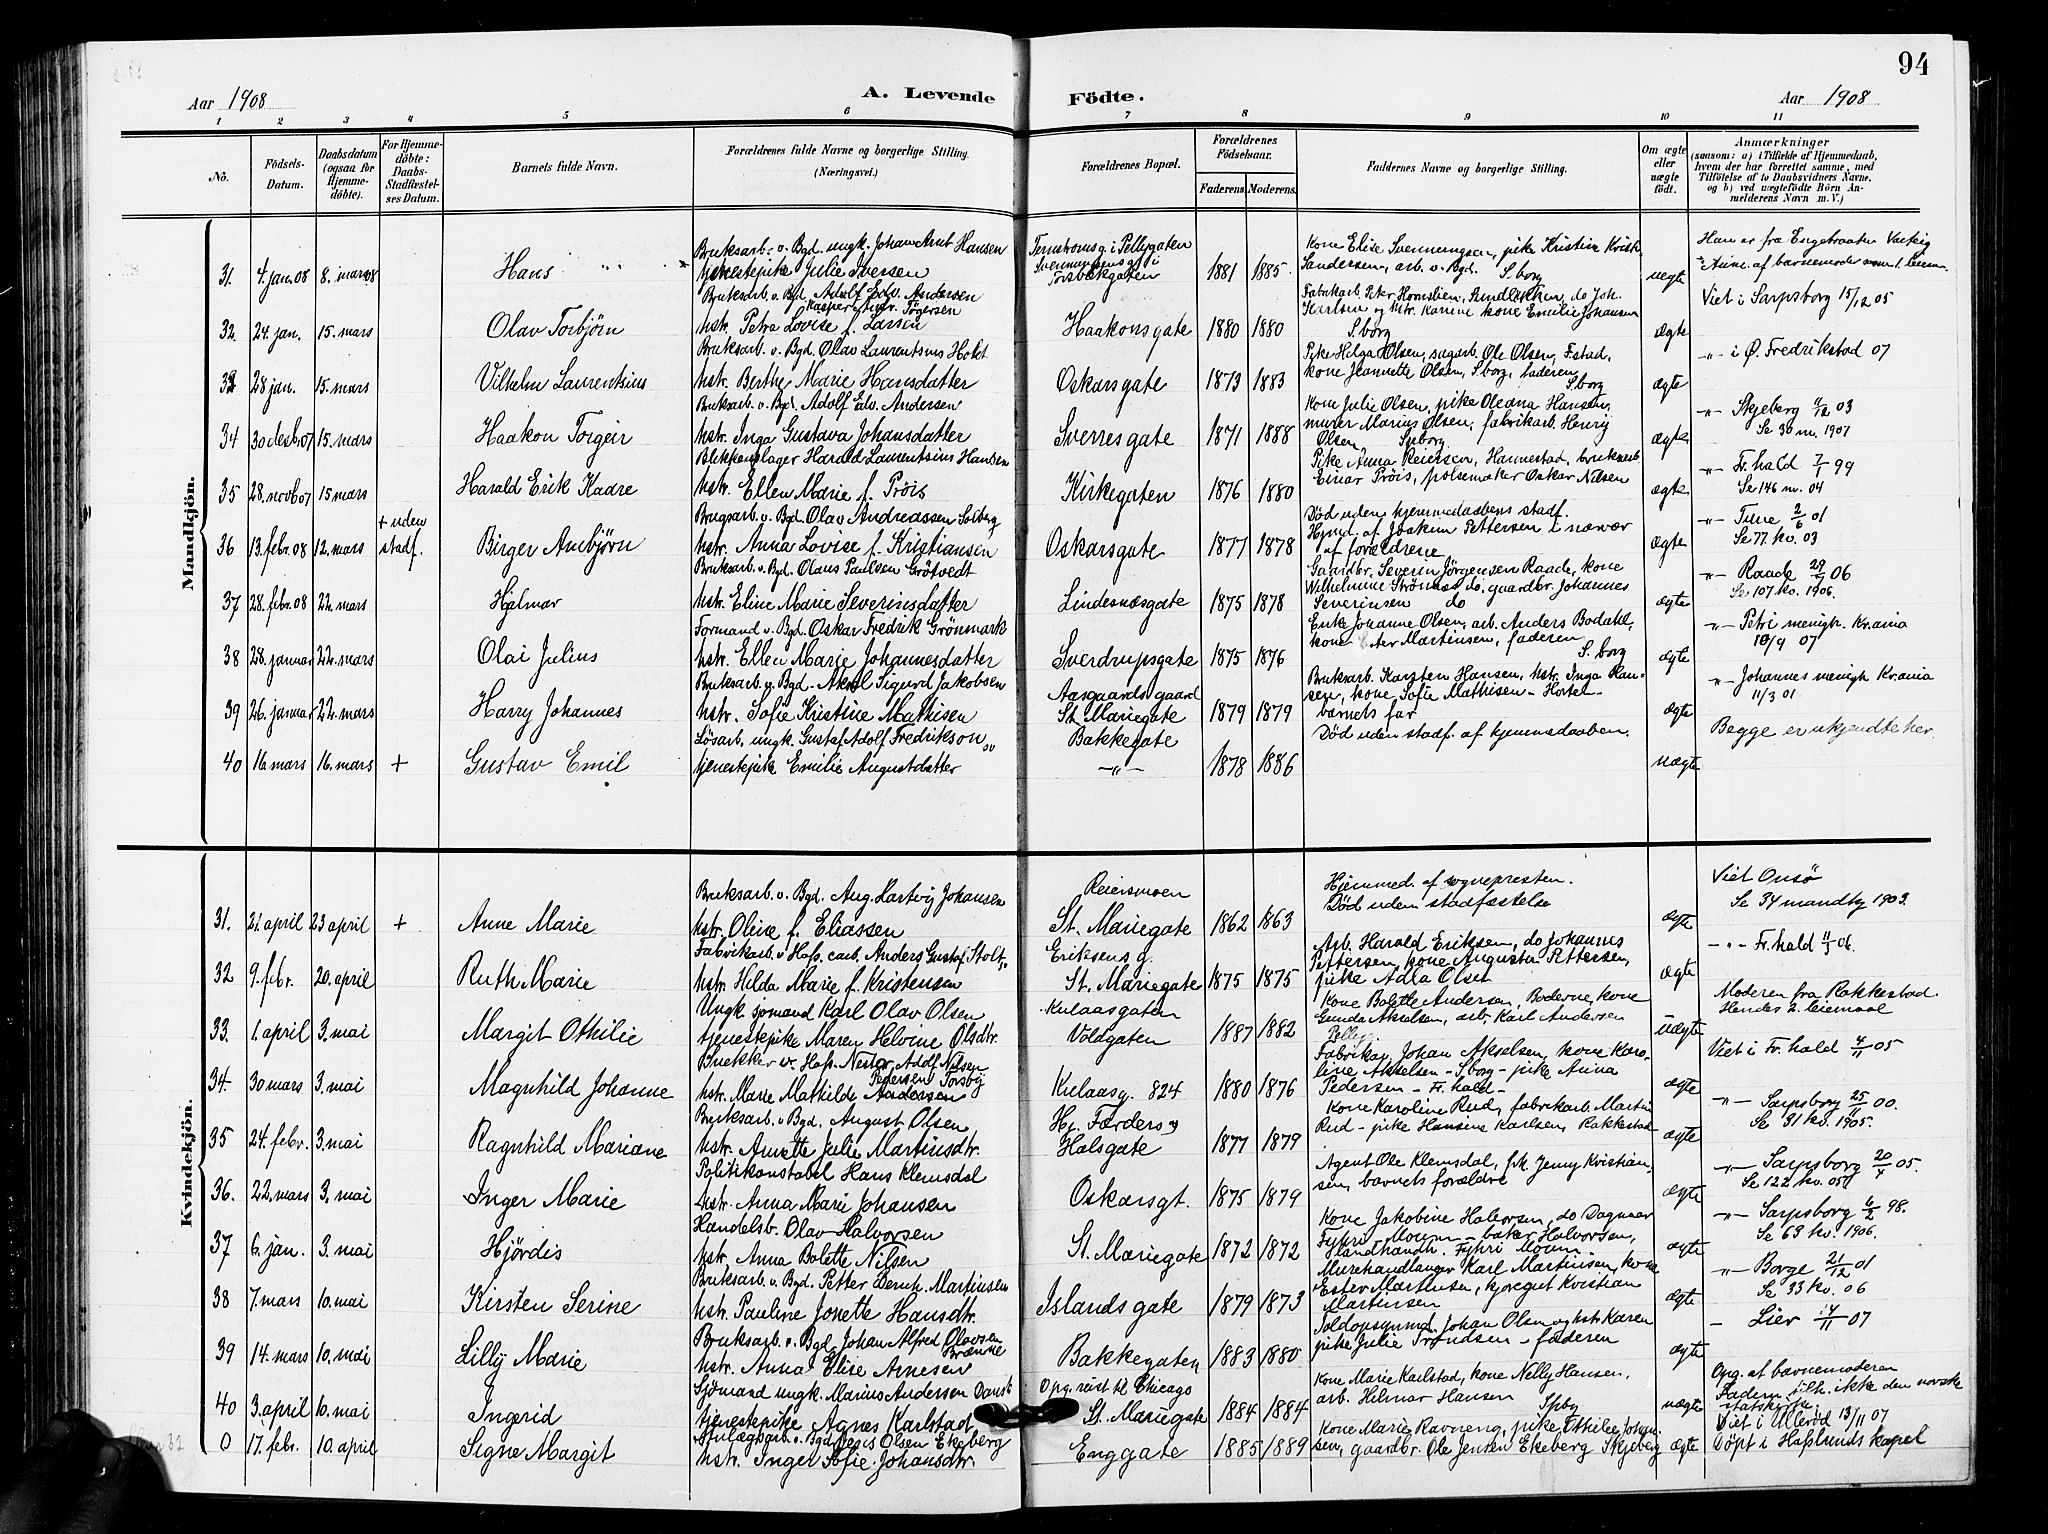 94
Aar 1908
A. Levende Födte.
Aar 1908
1 2 3 4 5 6 7 8 9 10 11
No.
Födsels-Datum.
Daabsdatum (ogsaa for Hjemme-döbte).
For Hjemme-döbte: Daabs-Stadfæstelses Datum.
Barnets fulde Navn.
Forældrenes fulde Navne og borgerlige Stilling. (Næringsvei.)
Forældrenes Bopæl.
Forældrenes Födselsaar.
Faderens. Moderens.
Faddernes Navne og borgerlige Stilling.
Om ægte eller uægte födt.
Anmærkninger
(saasom: a) i Tilfælde af Hjemmedaab, hvem der har forrettet samme, med Tilföielse af to Daabsvidners Navne, og b) ved uægtefödte Börn Anmelderens Navn m. V.)
Mandkjön.
Bruksarb. v. Bgd. ungk. Johan Arnt Hansen
31 4. jan. 08 8. mars 08 Hans tjenestepike Julie Iversen Torsbækgaten 1881 1885 uegte
Sandersen, arb. v. Bgd. S.borg
Bruksarb. v. Bgd. Adolf Edv. Andersen
Viet i Sarpsborg 15/12 05
32. 24. jan. 15. mars Olav Torbjørn hstr. Petra Lovise f. Larsen Haakonsgate 1880 1880 S.borg ægte
Bruksarb. v. Bgd. Olav Laurentsius Holt
Pike Helga Olsen, sagarb. Ole Olsen, F.stad,
-"- i Ø. Fredrikstad 07
33 28 jan. 15. mars Vilhelm Laurentsius hstr. Berthe Marie Hansdatter Oskarsgate 1873 1883 kone Jeannette Olsen, S.borg, faderen S.borg ægte
Bruksarb. v. Bgd. Adolf Edv. Andersen
Kone Julie Olsen, pike Oleana Hansen,
-"- Skjeberg 11/12 03
Se 30 m. 1907
34 30 desb. 07 15. mars Haakon Torgeir hstr. Inga Gustava Johansdatter Sverresgate 1871 1888 murer Marius Olsen, fabrikarb. Henry Olsen S.borg ægte
Blikkenslager Harald Laurentsius Hansen
Pike Anna Reiersen, Hannestad, bruksarb.
-"- Fr.hald 7/1 99
Se 146 m. 04
35 28. novb 07 15 mars Harald Erik Kadre hstr. Ellen Marie f. Tröis Kirkegaten 1876 1880 Einar Tröis, pølsemaker Oskar Næsen ægte
Brugsarb. v. Bgd. Olav Andreassen Solberg
Død uden hjemmedaabens stadf.
-"- Tune 2/6 01
Se 77 kv. 03
36 13. febr. 08 12. mars + uden stadf. Birger Arnbjørn hstr. Anna Lovise f. Kristiansen Oskarsgate 1877 1878 Hjmd. af Joakim Pettersen i nærvær af forældrene ægte
Bruksarb. v. Bgd. Olaus Paulsen Grötvedt
Gaardbr. Severin Jörgensen Raade, kone
-"- Raade 06
Se 107 kv. 1906.
37 28. febr. 08 22. mars Hjalmar hstr. Eline Marie Severinsdatter Lindesnæsgate 1875 1878 Wilhelmine Strömnæs do, gaardbr. Johannes Severinsen do ægte
Formand v. Bgd. Oskar Fredrik Grönmark
Enke Johanne Olsen, arb. Anders Bodahl,
-"- Petri menigh. Kr.ania 10/9 07
38 28. januar 22. mars Olai Julius hstr. Ellen Marie Johannesdatter Sverdrupsgate 1875 1876 Martinsen, faderen S.borg ægte
Bruksarb. v. Bgd. Aksel Sigurd Jakobsen
Aasgaards gaard
Bruksarb. Karsten Hansen, hstr. Inga Han-
-"- Johannes menigh. Kr.ania 11/3 01
39 26. januar 22. mars Harry Johannes hstr. Sofie Kristine Mathisen St. Mariegate 1879 1879 sen, kone Sofie Mathisen - Horten - barnets far ægte
Lösarb. ungk. Gustaf Adolf Fredrikson
Bakkegate
Død uden stadf. af hjemmedaaben.
Begge er ukjendte her.
40 16. mars 16. mars + Gustav Emil tjenestepike Emilie Augustdatter -"- 1878 1886 uægte
Kvindekjön.
Bruksarb. v. Bgd. Aug. Hartvig Johansen
Reiersmoen
Hjemmed. af sognepresten.
Viet Onsø
31. 21. april 23 april + Anne Marie hstr. Oline f. Eliassen St. Mariegate 1862 1863 Død uden stadfæstelse ægte Se 34 mandkj 1903.
Fabrikarb. v. Hafs. carb. Anders Gustaf Stolt
Eriksens g.
Arb. Harald Eriksen, do Johannes
-"- Fr. hald 11/3 06.
32 9. febr. 20. april Ruth Marie hstr. Hilda Marie f. Kristensen St. Mariegate 1875 1875 Pettersen, kone Augusta Pettersen, pike Adla Olsen ægte
Ungk. sjømand Karl Olav Olsen
Kulaasgaten
Kone Bolette Andersen, Boderne, kone
Moderen fra Rakkestad.
Hendes 2. leiemaal
33. 1. april 3. mai Margit Othilie tjenestepike Maren Helvine Olsdtr. Voldgaten 1887 1882 Gunda Akselsen, arb. Karl Andersen uægte
Snekker v. Hafs. Nestor Adolf Nilsen
Fabrikar. Johan Akselsen, kone Karo-
Viet i Fr. hald 4/11 05
34. 30 mars 3. mai Magnhild Johanne hstr. Marie Mathilde Andersen Kulaasg. 824 1880 1876 line Akselsen - S.borg - pike Anna Pedersen - Fr. hald - ægte
Bruksarb. v. Bgd. August Olsen
Hj. Færders og
Kone Karoline Rud, fabrikarb. Martin
-"- Sarpsborg 25/11 00.
Se 91 kv. 1905.
35 24. febr. 3. mai Ragnhild Mariane hstr. Anette Julie Martinsdtr. Halsgate 1877 1879 Rud - pike Hansine Karlsen, Rakkestad ægte
Politikonstabel Hans Klemsdal
Agent Ole Klemsdal, frk. Jenny Kristian-
-"- Sarpsborg 20/4 05.
Se 122 kv. 05
36. 22. mars 3. mai Inger Marie hstr. Anna Marie Johansen Oskarsgt. 1875 1879 sen, barnets forældre ægte
Handelsb. Olav Halvorsen
Kone Jakobine Halvorsen, do Dagmar
-"- Sarpsborg 6/2 98.
Se 63 kv. 1906.
37 6. jan. 3. mai Hjördis hstr. Anna Bolette Nilsen St. Mariegate 1872 1872 Fyhri Moum - baker Halvorsen, Landhandl. Fyhri Moum ægte
Bruksarb. v. Bgd. Petter Bernh. Martinsen
Murehandlanger Karl Martinsen, kone
-"- Borge 21/12 01
Se 33 kv. 06
38 7. mars 10. mai Kirsten Serine hstr. Pauline Jonette Hansdtr. Islandsgate 1879 1873 Ester Martinsen, kjøregut Kristian Martinsen ægte
Bruksarb. v. Bgd. Johan Alfred Olavsen
Toldopsynmd. Johan Olsen og hstr. Karen
- Lier 17/11 07
39 14. mars 10. mai Lilly Marie hstr. Anna Elise Arnesen Bakkegaten 1883 1880 pike Julie Tröndsen - faderen ægte
Sjömand ungk. Marius Andersen Dansk
Opg. reist til Chicago
Kone Marie Karlstad, kone Nelly Hansen,
Opg. af barnemoderen
Faderen tilh. ikke den norske statskirke
40 3. april 10. mai Ingerid tjenestepike Agnes Karlstad St. Mariegate 1884 1884 arb. Hilmar Hansen Spbg uægte
Kone Marie Ravneng, pike Othilie Johan-
Viet i Ullerød 13/11 07
0 17. febr. 10. april Signe Margit hstr. Inger Sofie Johansdtr. Enggate 1885 1889 sen, gaardbr. Ole Jensen Ekeberg Skjeberg ægte Döpt i Hafslunds kapel